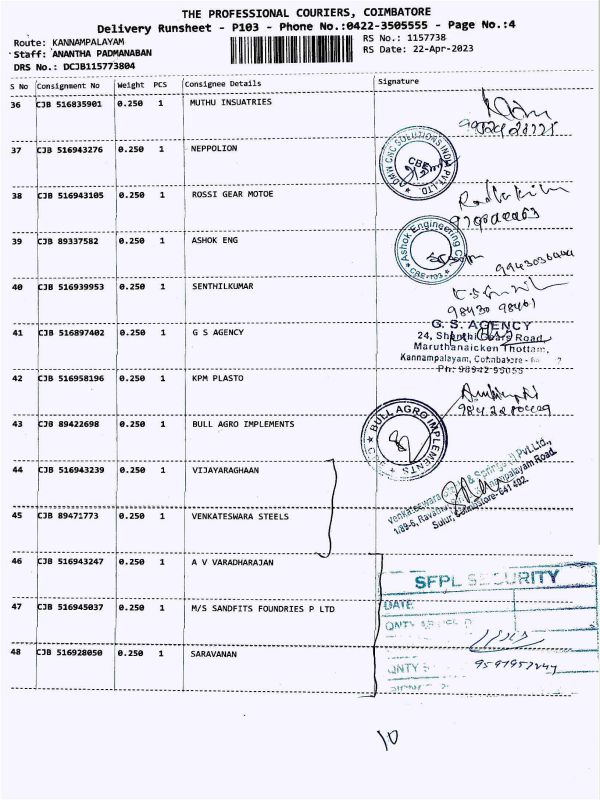 THE PROFESSIONAL COURIERS, COIMBATORE
Delivery Runsheet - P103 - Phone No.:0422-3505555 - Page No.:4
Route: KANNAMPALAYAM
Staff: ANANTHA PADMANABAN
DRS No.: DCJB115773804
RS No.: 1157738
RS Date: 22-Apr-2023
S No Consignment No Weight PCS Consignee Details Signature
36 CJB 516835901 0.250 1 MUTHU INSUATRIES
37 CJB 516943276 0.250 1 NEPPOLION
CBE
38 CJB 516943105 0.250 1 ROSSI GEAR MOTOE
39 CJB 89337582 0.250 1 ASHOK ENG
Ashok Engineering
CBE-103
40 CJB 516939953 0.250 1 SENTHILKUMAR
98430 98401
41 CJB 516897402 0.250 1 G S AGENCY
G. S. AGENCY
24, Shanthi Gears Road,
Maruthanaicken Thottam,
Kannampalayam, Coimbatore -
Ph: 98942 95055
42 CJB 516958196 0.250 1 KPM PLASTO
43 CJB 89422698 0.250 1 BULL AGRO IMPLEMENTS
BULL AGRO IMPLEMENTS
44 CJB 516943239 0.250 1 VIJAYARAGHAAN
45 CJB 89471773 0.250 1 VENKATESWARA STEELS
Venkateswara & Springs (I) Pvt.Ltd.,
Sulur, Coimbatore-641 402.
46 CJB 516943247 0.250 1 A V VARADHARAJAN
SFPL SECURITY
47 CJB 516945037 0.250 1 M/S SANDFITS FOUNDRIES P LTD
DATE
QNTY
48 CJB 516928050 0.250 1 SARAVANAN
QNTY
10